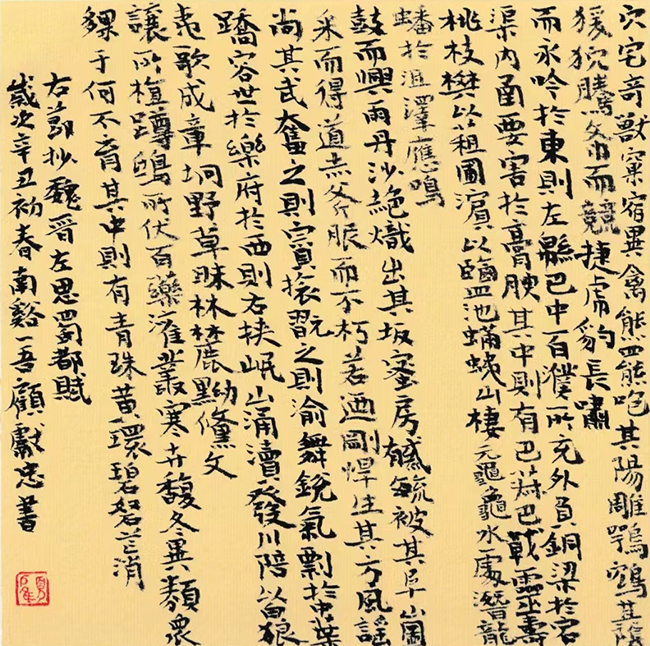 穴宅奇獸窠宿異禽熊羆咆其陽雕鶚鴥其陰
猨狖騰希而競捷虎豹長嘯
而永吟於東則左緜巴中百濮所充外負銅梁於宕
渠內函要害於膏腴其中則有巴菽巴戟靈壽
桃枝樊以蒩圃濱以鹽池蟞蛦山棲黿龜水處潛龍
蟠於沮澤應鳴
鼓而興雨丹沙赩熾出其坂蜜房郁毓被其阜山圖
采而得道赤斧服而不朽若迺剛悍生其方風謠
尚其武奮之則賨旅翫之則渝舞銳氣剽於中葉
蹻容世於樂府於西則右挾岷山涌瀆發川陪以白狼
夷歌成章坰野草昧林麓黝儵交
讓所植蹲鴟所伏百藥灌叢寒卉馥冬異類衆
夥于何不育其中則有青珠黃環碧砮芒消
右節抄魏晉左思蜀都賦
歲次辛丑初春南谿一吾顧獻忠書